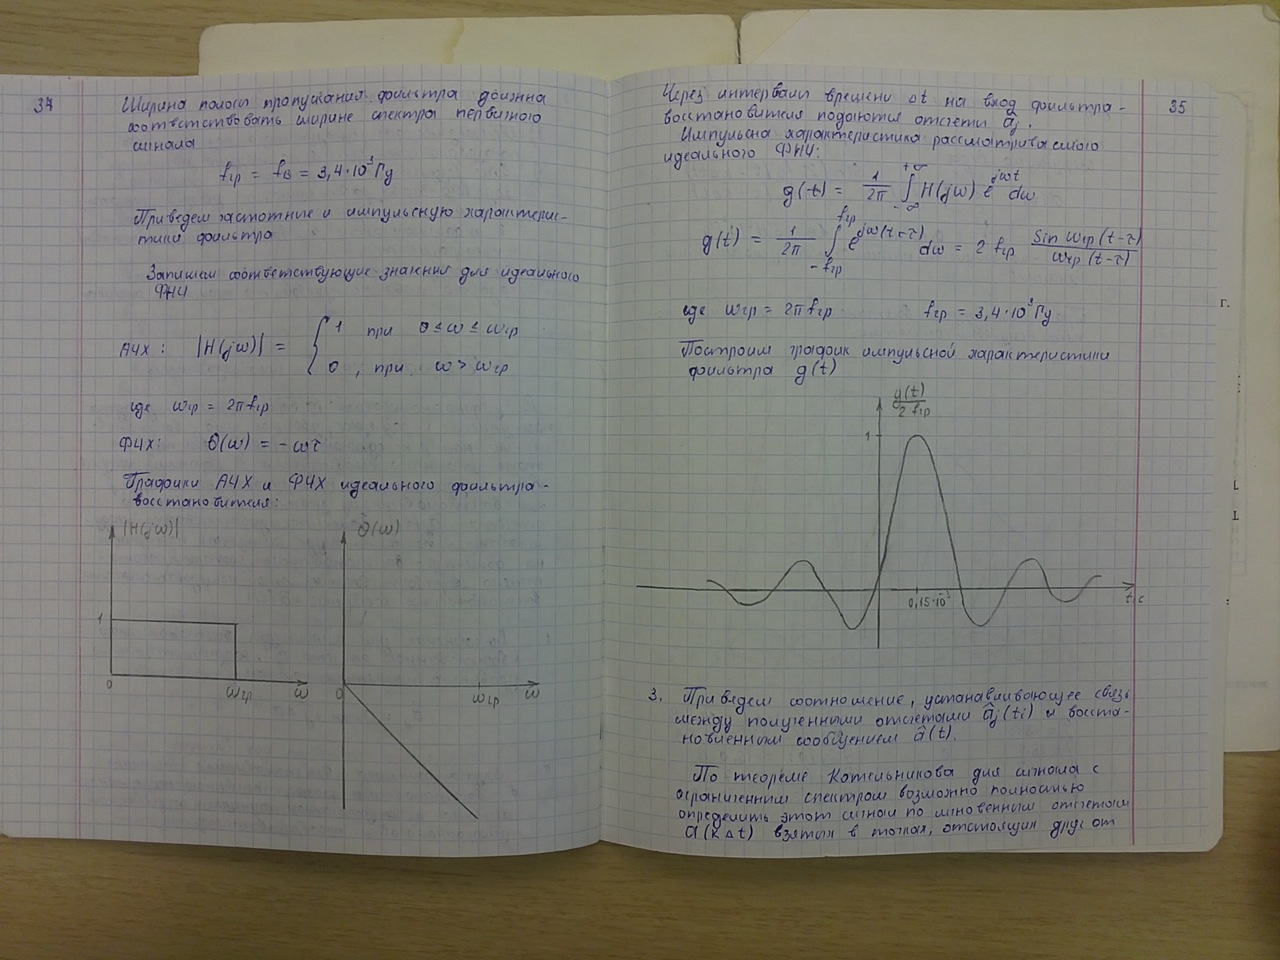 34
Ширина полосы пропускания фильтра должна
соответствовать ширине спектра первичного
сигнала
fгр = fв = 3,4·10³Гц
Приведем частотные и импульсную характерис-
тики фильтра
Запишем соответствующие значения для идеального
ФНЧ
АЧХ: |H(jω)| = { 1 при 0 ≤ ω ≤ ωгр
0, при ω > ωгр
где ωгр = 2πfгр
ФЧХ: Θ(ω) = -ωτ
Графики АЧХ и ФЧХ идеального фильтра-
восстановителя:
|H(jω)| Θ(ω)
1
0 ωгр ω 0 ωгр ω
35
Через интервалы времени Δt на вход фильтра-
восстановителя подаются отсчеты âj.
Импульсна характеристика рассматриваемого
идеального ФНЧ:
g(t) = 1/2π ∫_{-∞}^{+∞} H(jω) e^{jωt} dω
g(t) = 1/2π ∫_{-fгр}^{fгр} e^{jω(t-τ)} dω = 2 fгр Sin ωгр (t-τ) / ωгр (t-τ)
где ωгр = 2π fгр fгр = 3,4·10³Гц
Построим график импульсной характеристики
фильтра g(t)
g(t)/2 fгр
1
0,15·10⁻³ t, c
3. Приведем соотношение, устанавливающее связь
между полученными отсчетами âj(ti) и восста-
новленным сообщением â(t).
По теореме Котельникова для сигнала с
ограниченным спектром возможно полностью
определить этот сигнал по мгновенным отсчетам
a(kΔt) взятых в точках, отстоящих друг от
г.